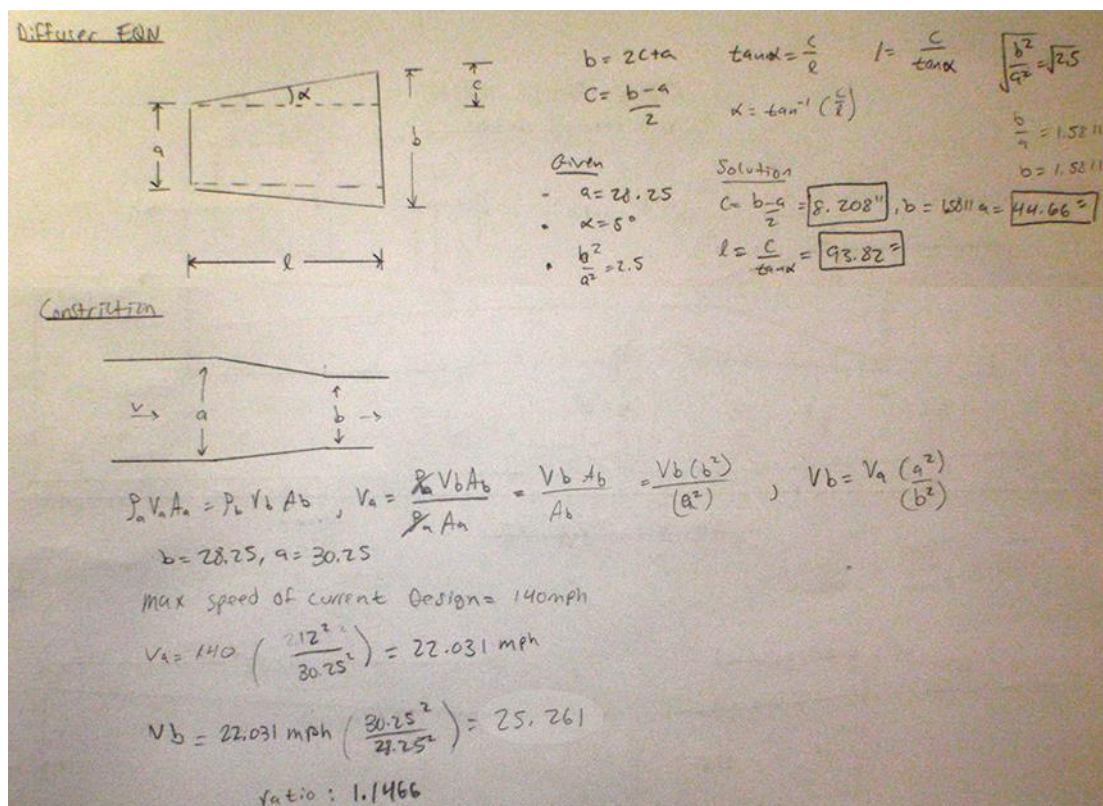 Diffuser EQN
α
a
b
c
l
b = 2c+a
c = b-a/2
tanα = c/l
α = tan⁻¹ (c/l)
l = c/tanα
√b²/a² = √2.5
b/a = 1.5811
b = 1.5811
Given
- a = 28.25
• α = 5°
• b²/a² = 2.5
Solution
c = b-a/2 = 8.208", b = 1.5811 a = 44.66"
l = c/tanα = 93.82"
Constriction
v → a b →
ρa Va Aa = ρb Vb Ab , Va = ρa Vb Ab / ρa Aa = Vb Ab / Ab = Vb (b²) / (a²) , Vb = Va (a²)/(b²)
b = 28.25, a = 30.25
max speed of current Design = 140mph
Va = 140 (12²/30.25²) = 22.031 mph
Vb = 22.031 mph (30.25²/28.25²) = 25.261
ratio : 1.1466